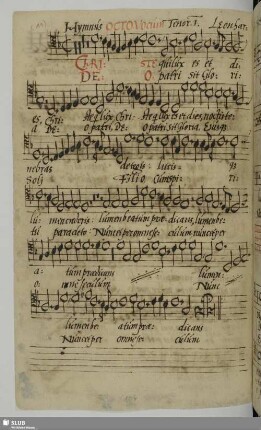 Hymnus OCTO Vocum Tenor. 1. Leon: Har:
CHRI: STE qui lux es et di:
DE: O. patri sit Glo: ri:
es, Chri: ste qui lux es et dies, noctis te:
a De: o patri. Deo patri sit gloria, Eiusq;
nebras detegis: lucis: q;
Soli Filio Cum spi: ri:
lu: men crederis: lumen beatum præ: dicans, lumen be:
tu paracleto Nunc et per omne sæ: culum nunc et per
a: tum prædicans lumen:
o: mne sæculum Nunc
lumen be: atum præ: dicans
Nunc et per omne sæ: culum
SLUB